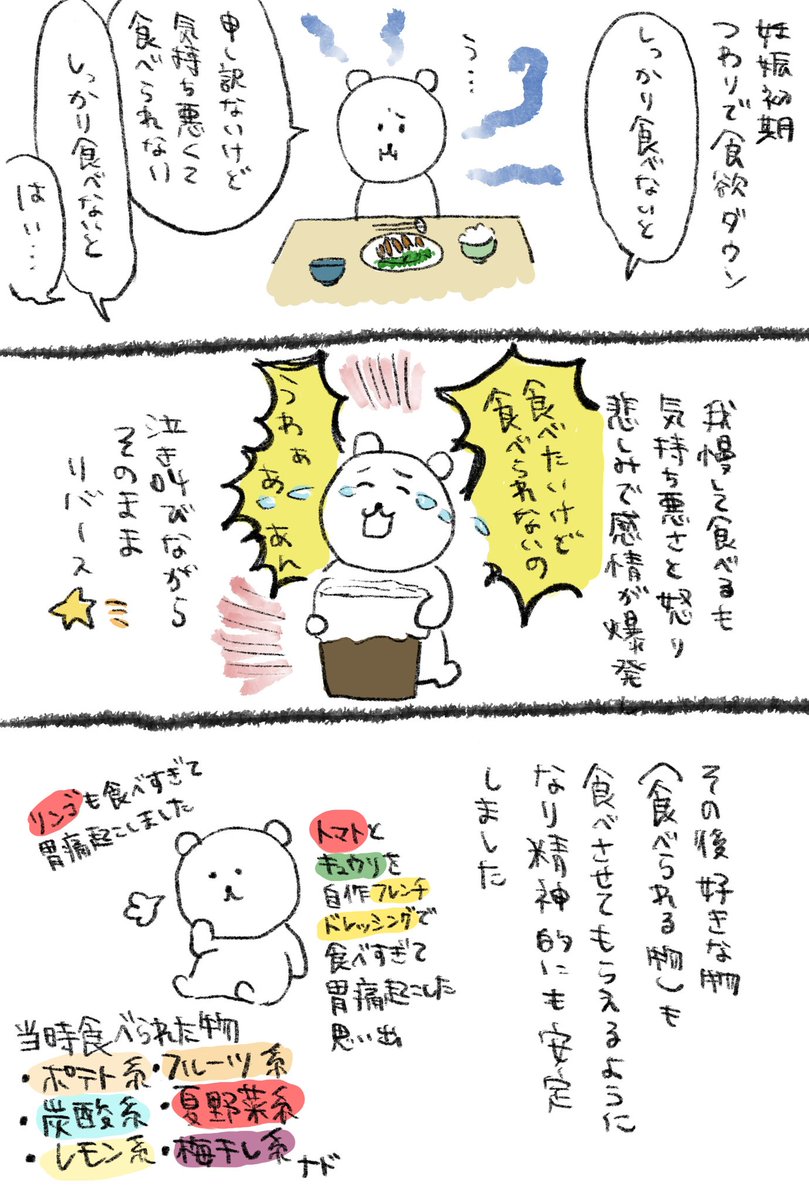 妊娠初期
つわりで食欲ダウン
しっかり食べないと
う…
申し訳ないけど
気持ち悪くて
食べられない
しっかり食べないと
はい…
我慢して食べるも
気持ち悪さと怒り
悲しみで感情が爆発
食べたいけど
食べられないの
うわぁああん
泣き叫びながら
そのまま
リバース
その後好きな物
(食べられる物)も
食べさせてもらえるように
なり精神的にも安定
しました
トマトと
キュウリを
自作フレンチ
ドレッシングで
食べすぎて
胃痛起こした
思い出
リンゴも食べすぎて
胃痛起こしました
当時食べられた物
・ポテト系・フルーツ系
・炭酸系・夏野菜系
・レモン系・梅干し系
ナド